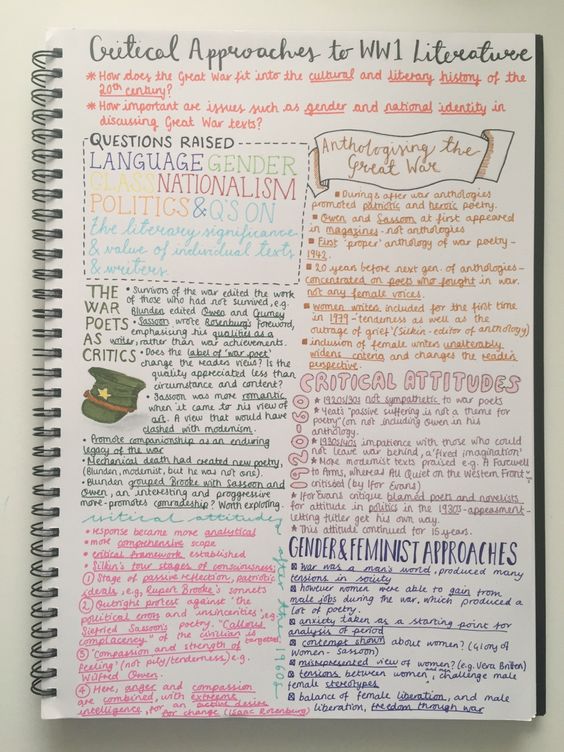 Critical Approaches to WW1 Literature
* How does the Great War fit into the cultural and literary history of the
20th century?
* How important are issues such as gender and national identity in
discussing Great War texts?
QUESTIONS RAISED
LANGUAGE GENDER
CLASS NATIONALISM
POLITICS & Q'S ON
the literary significance
& value of individual texts
& writers.
Anthologising the
Great War
During & after war anthologies
promoted patriotic and heroic poetry.
Owen and Sassoon at first appeared
in magazines - not anthologies
First 'proper' anthology of war poetry -
1942.
20 years before next gen. of anthologies -
concentrated on poets who fought in war.
not any female voices.
women writers included for the first time
in 1979 - tenderness as well as the
outrage of grief' (Silkin - editor of anthology)
inclusion of female writers unalterably
widens criteria and changes the reader's
perspective.
THE
WAR
POETS
AS
CRITICS
• Survivors of the war edited the work
of those who had not survived, e.g.
Blunden edited Owen and Gurney
• Sassoon wrote Rosenburg's foreword,
emphasising his qualities as a
writer, rather than war achievements.
• Does the label of 'war poet'
change the readers views? Is the
quality appreciated less than
circumstance and content?
• Sassoon was more romantic
when it came to his view of
art. A view that would have
clashed with modernism.
• Promote companionship as an enduring
legacy of the war
• Mechanical death had created new poetry,
(Blunden, modernist, but he was not ans).
• Blunden grouped Brooke with Sassoon and
Owen, an interesting and proggressive
move - promotes comradeship? Worth exploring.
CRITICAL ATTITUDES
1920-60
* 1920s/30s not sympathetic to war poets
* Yeats "passive suffering is not a theme for
poetry" (on not including Owen in his
anthology.
* 1930s/40s impatience with those who could
not leave war behind, a 'fixed imagination'
* More modernist texts praised e.g. A Farewell
to Arms, whereas All Quiet on the Western Front
critisised (by Ifor Evans)
* Ifor Evans critique blamed poets and novelists
for attitude in politics in the 1930s - appeasment -
letting Hitler get his own way.
* This attitude continued for 15 years.
critical attitudes after the 1960s
• response became more analytical
• more comprehensive scope
• critical framework established
• Silkin's four stages of consciousness;
1 Stage of passive reflection, patriotic
ideals, e.g, Rupert Brooke's sonnets
2 Outright protest against 'the
political errors and insincerities', e.g,
Siefried Sassoon's poetry. "Callous
complacency" of the civilian is targeted.
3 'Compassion and strength of
feeling' (not pity/tenderness) e.g.
Wilfred Owen.
4 Here, anger and compassion
are combined, with extreme
intelligence, for an active desire
for change (Isaac Rosenburg)
GENDER & FEMINIST APPROACHES
war was a man's world, produced many
tensions in society
however women were able to gain from
male jobs during the war, which produced a
lot of poetry.
anxiety taken as a starting point for
analysis of period
contempt shown about women? (Glory of
Women - Sassoon)
misrepresented view of women? (e.g. Vera Brittain)
tensions between women and men, challenge male
female stereotypes
balance of female liberation, and male
liberation, freedom through war